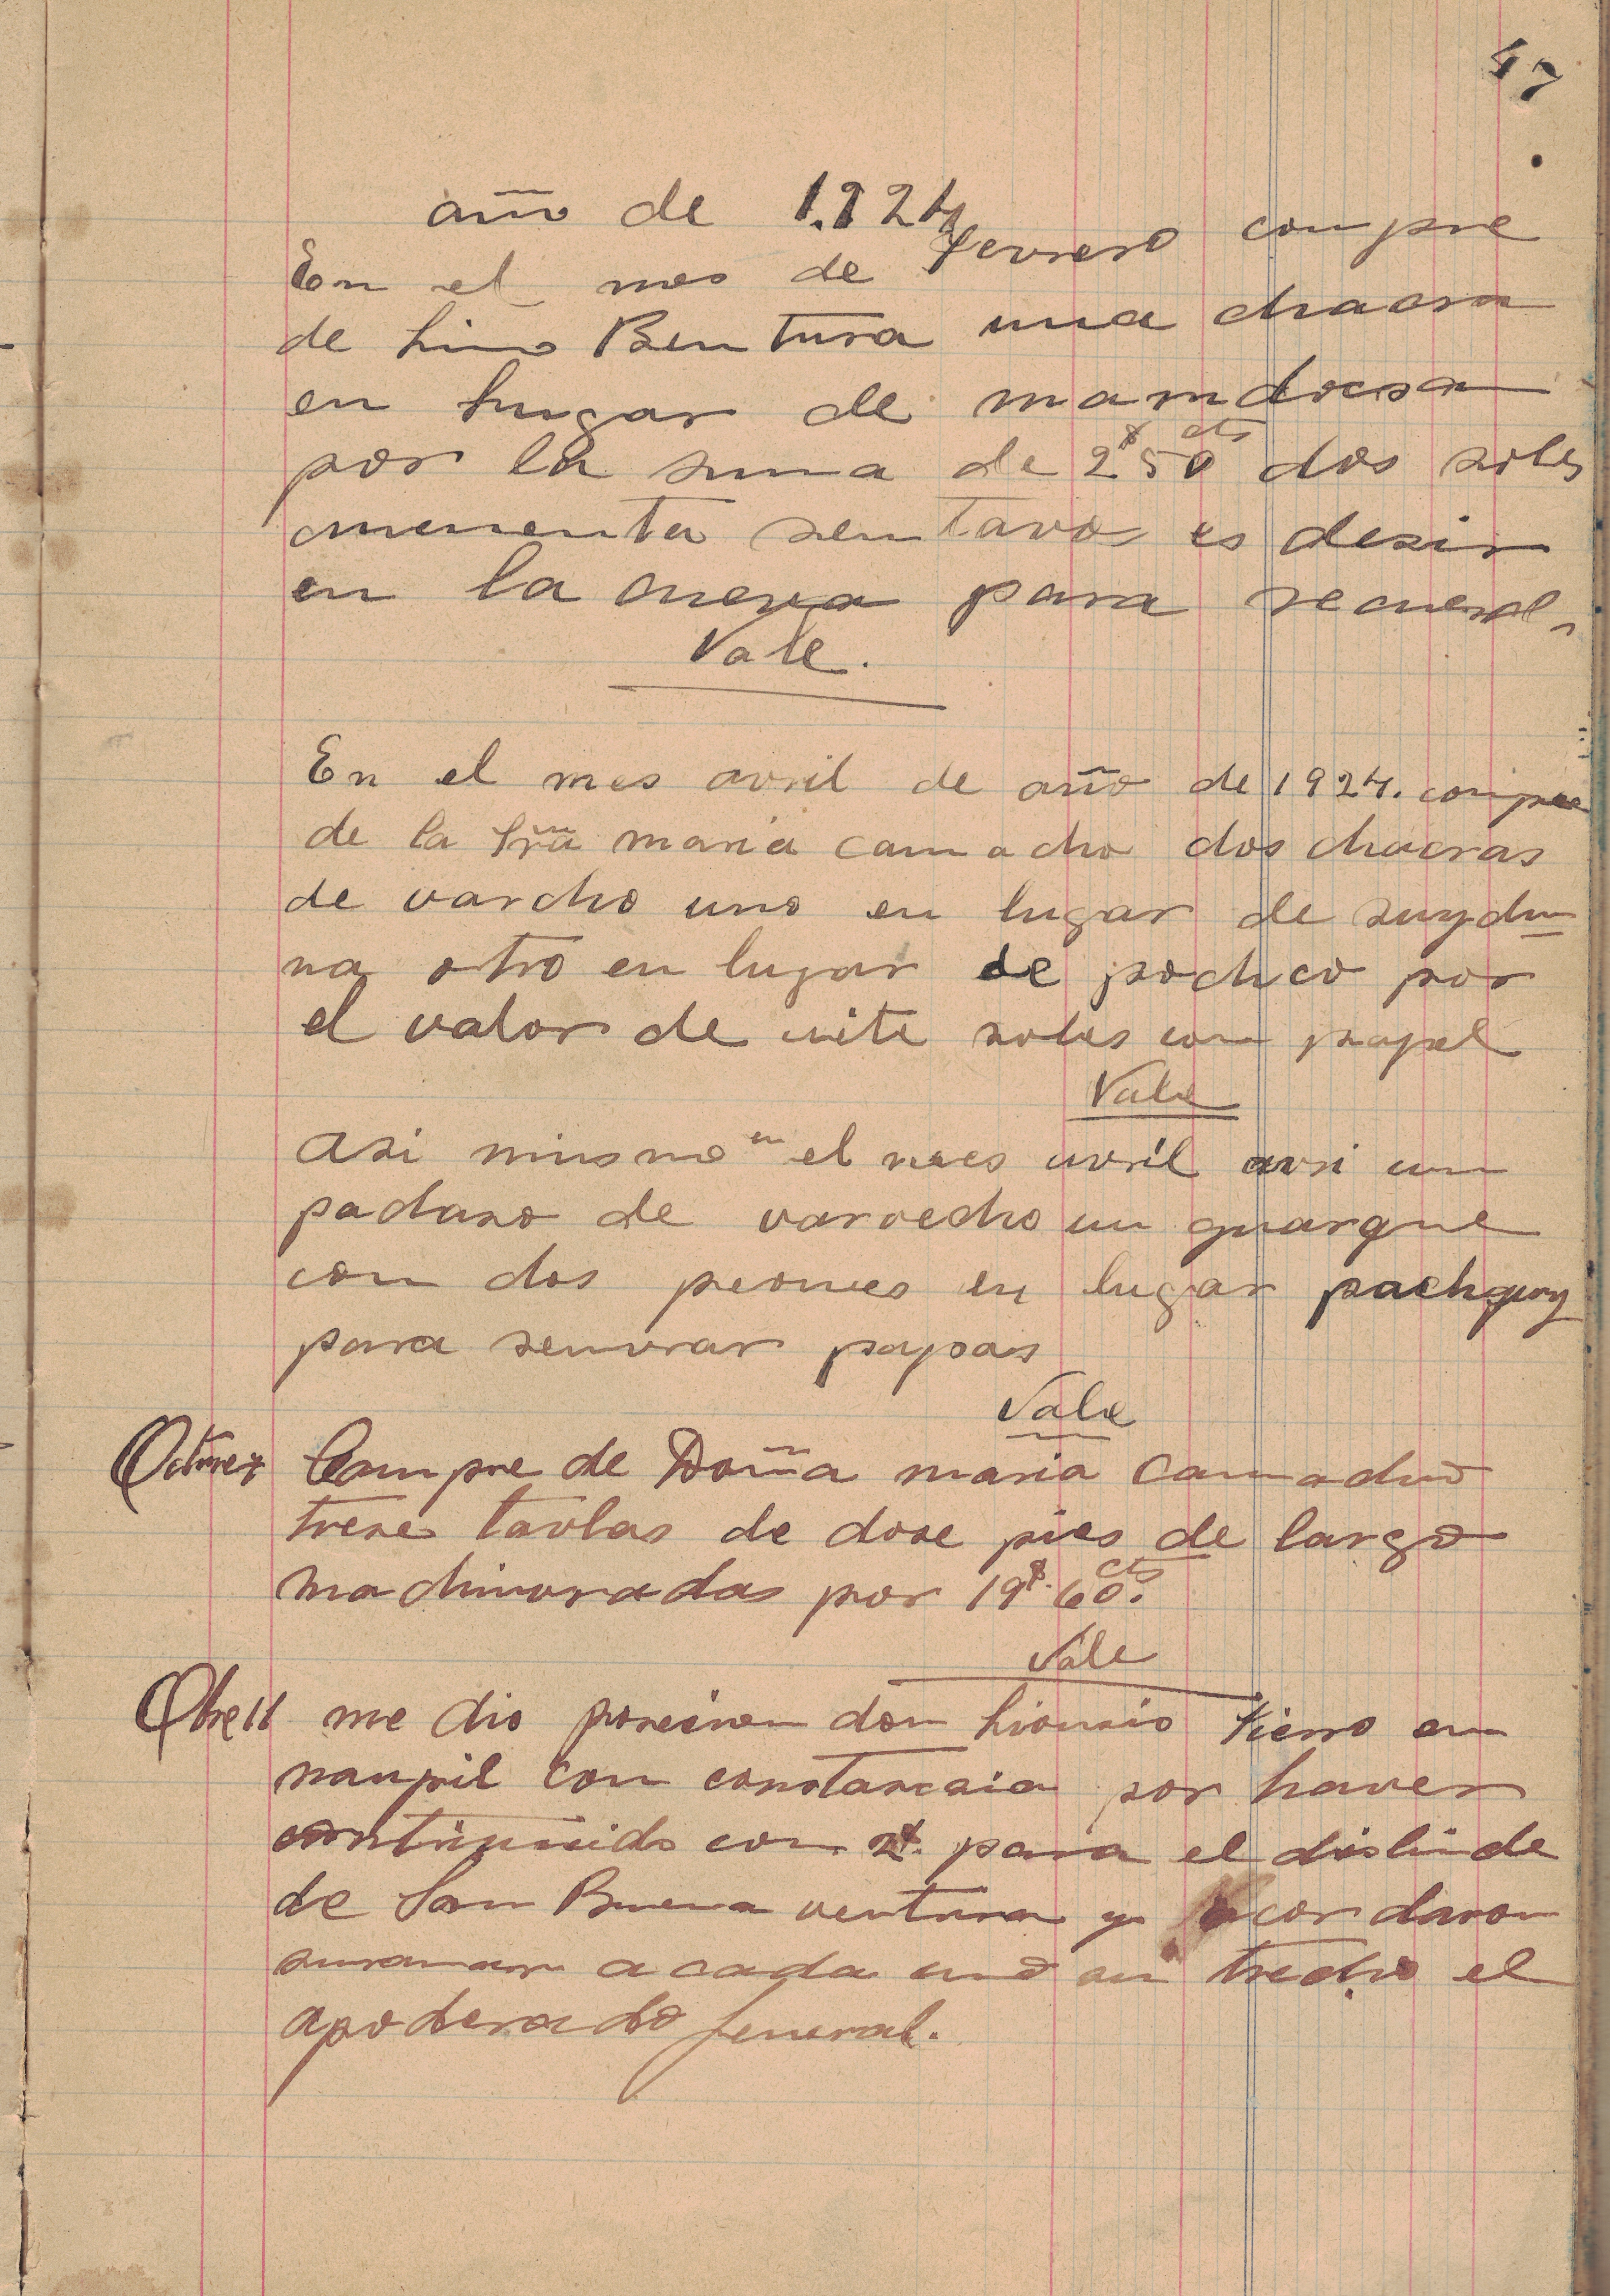 47
año de 1.924
En el mes de Fevrero compre
de Lino Bentura una chacra
en lugar de
por la suma de 2$ 50 cts dos soles
senTavos es desir
en la para
Vale.
En el mes avril de año de 1924. compre
de la Sra maria camacho dos chacras
de varcho uno en lugar de
na otro en lugar de pochco por
el valor de soles con papel
Vale
asi mismo en el mes avril avri un
padaso de varvecho un
con dos peones en lugar
para semvrar papas
Vale
Compre de Doña maria camacho
trese tavlas de dose pies de largo
machimvradas por 19$. 60. cts
Vale
me dio don Tierro en
con constancia por haver
con 2$. para el deslinde
de San Buena ventura y acordaron
a cada uno un trecho el
apoderado jeneral.